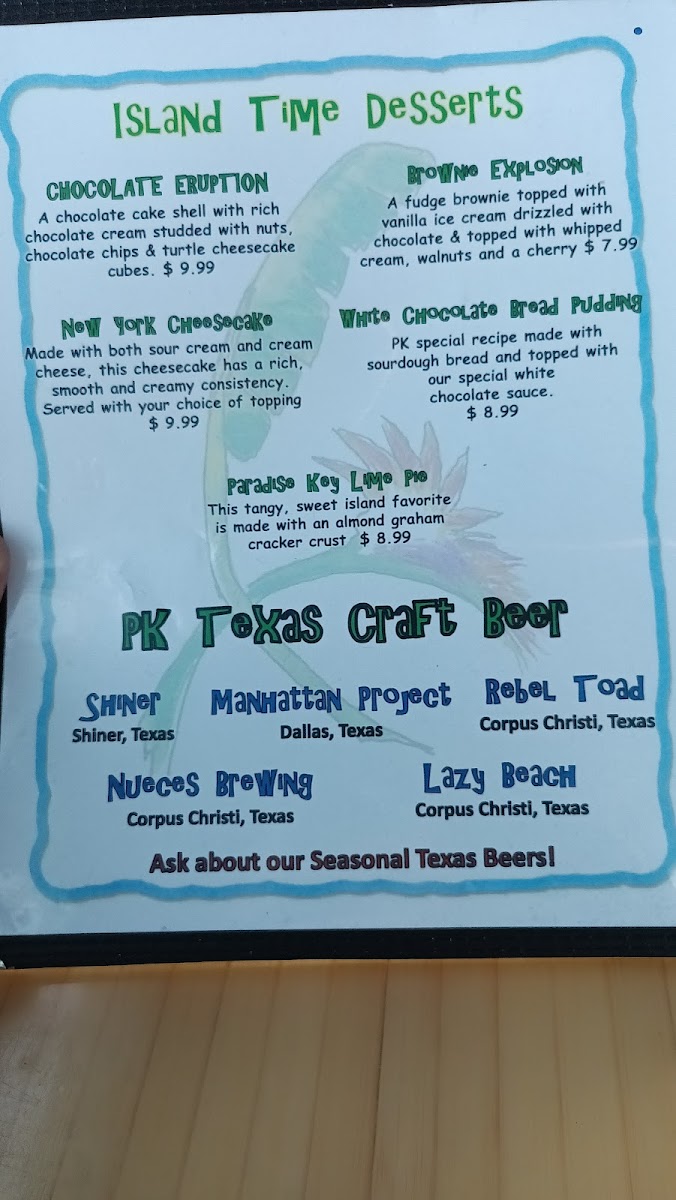 Island Time Desserts
CHOCOLATE ERUPTION
A chocolate cake shell with rich
chocolate cream studded with nuts,
chocolate chips & turtle cheesecake
cubes. $ 9.99
Brownie Explosion
A fudge brownie topped with
vanilla ice cream drizzled with
chocolate & topped with whipped
cream, walnuts and a cherry $ 7.99
New York Cheesecake
Made with both sour cream and cream
cheese, this cheesecake has a rich,
smooth and creamy consistency.
Served with your choice of topping
$ 9.99
White Chocolate Bread Pudding
PK special recipe made with
sourdough bread and topped with
our special white
chocolate sauce.
$ 8.99
Paradise Key Lime Pie
This tangy, sweet island favorite
is made with an almond graham
cracker crust $ 8.99
PK Texas Craft Beer
Shiner
Shiner, Texas
Manhattan Project
Dallas, Texas
Rebel Toad
Corpus Christi, Texas
Nueces Brewing
Corpus Christi, Texas
Lazy Beach
Corpus Christi, Texas
Ask about our Seasonal Texas Beers!